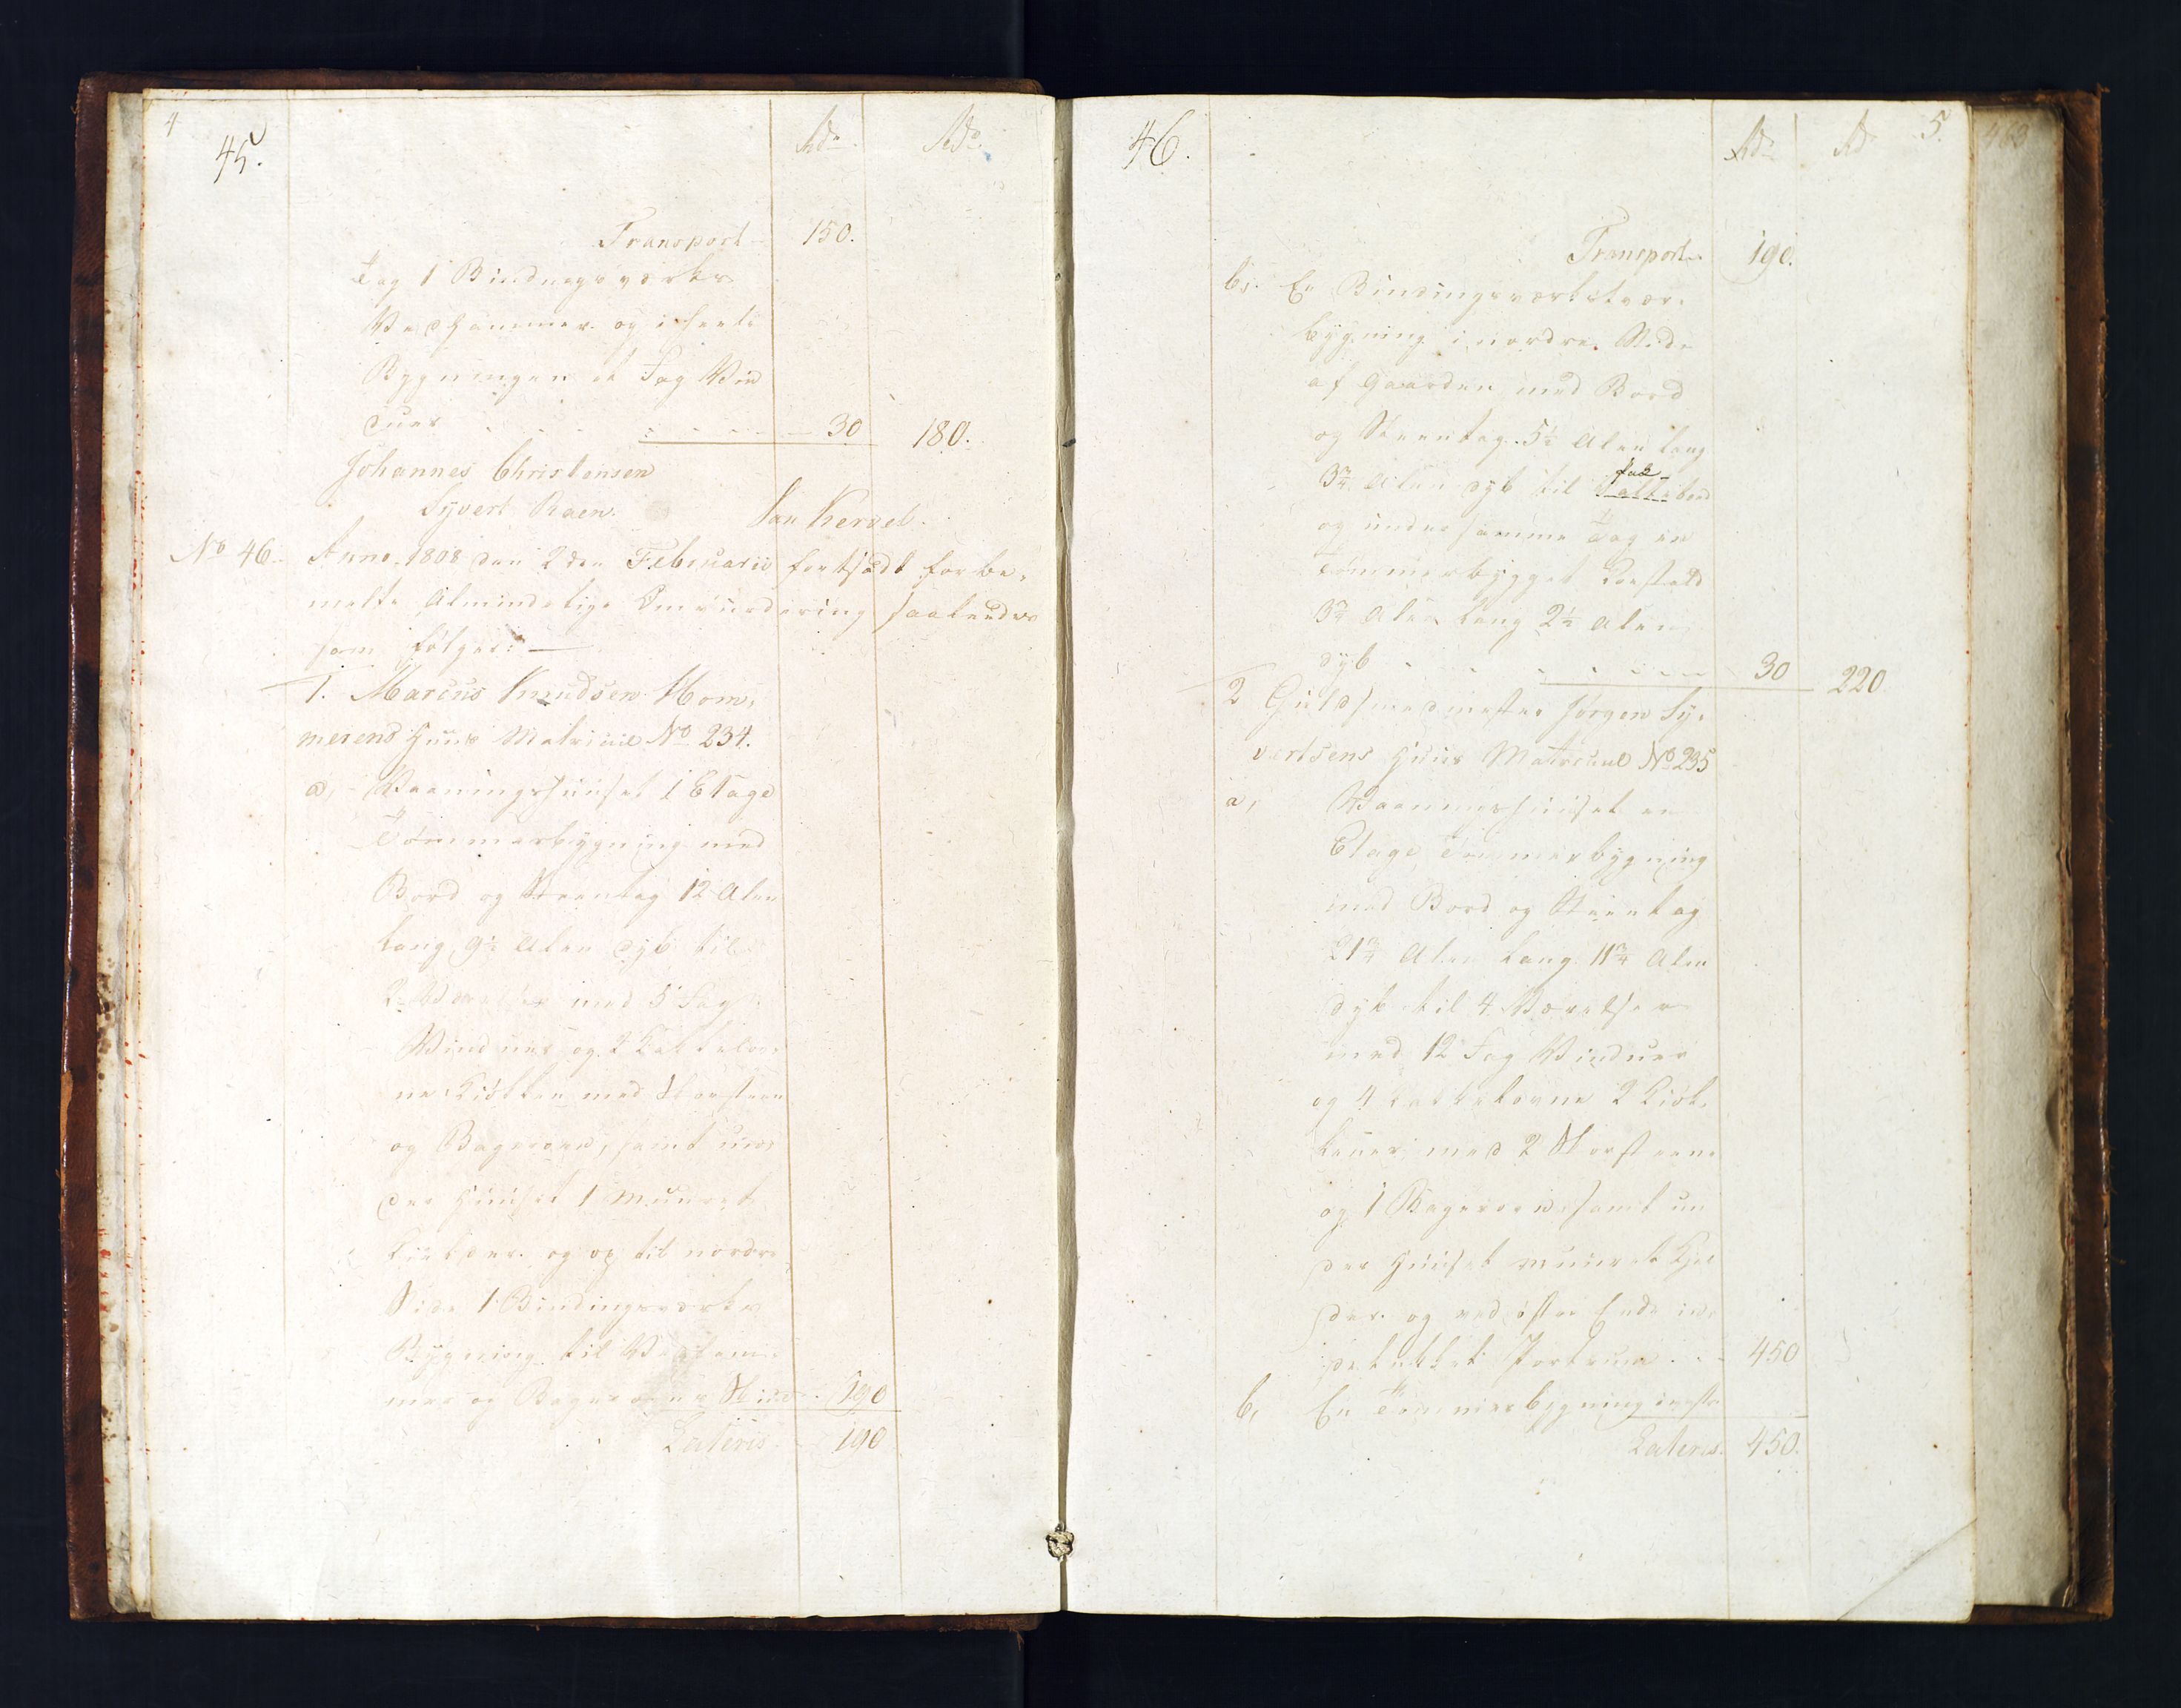 4
45.
Rdr. Rdr.
Transport 150.
Tag 1 Bindnegsværks
Vedkammer og i heele
Bygningen et Fag Vin
duer 30 180.
Johannes Christensen
Syvert Raen. Jan Kervel.
No 46 Anno 1808 den 2den Februarii fortsadt forbe,
melte Almindelige Omvurdering saaledes
som følger: —
1. Marcus Knudsen Hom,
merens Huus Matricul No 234.
a, Vaaningshuuset 1 Etage
Tømmerbygning med
Bord og Steentag 12 Alen
lang 9½ Alen dyb til
2 Værelser med 5 Fag
Vinduer og 2 Kakkelov,
ne Kiøkken med Skorsteen
og Bagerovn, samt un,
der Huuset 1 Muuret
Kielder og op til nordre
Side 1 Bindingsværks
Bygning til Vedkam,
mer og Bagerovns 190
Lateris 190
46. Rdr Rd 5.
463
Transport. 190.
b. En Bindingsverks tver,
bygning i nordre Side
af Gaarden med Bord
og Steentag 5½ Alen lang
3¾ Alen dyb til
og under samme Tag en
Tømmerbygget Koestald
3¾ Alen lang 2½ Alen
dyb 30 220
2 Guldsmedmester Jörgen Sy,
vertsens Huus Matricul No 235
a, Vaaningshuuset en
Etage Tømmerbygning
med Bord og Steentag
21¾ Alen lang 11¾ Alen
dyb til 4 Værelser
med 12 Fag Vinduer
og 4 Kakkelovne 2 Kiøk,
kener med 2 Skorsteene
og 1 Bagerovn samt un
der Huuset muuret Kjel
der og ved østre Ende in,
delukket Portrum 450
b, En Tømmerbygning i vestre
Lateris. 450.